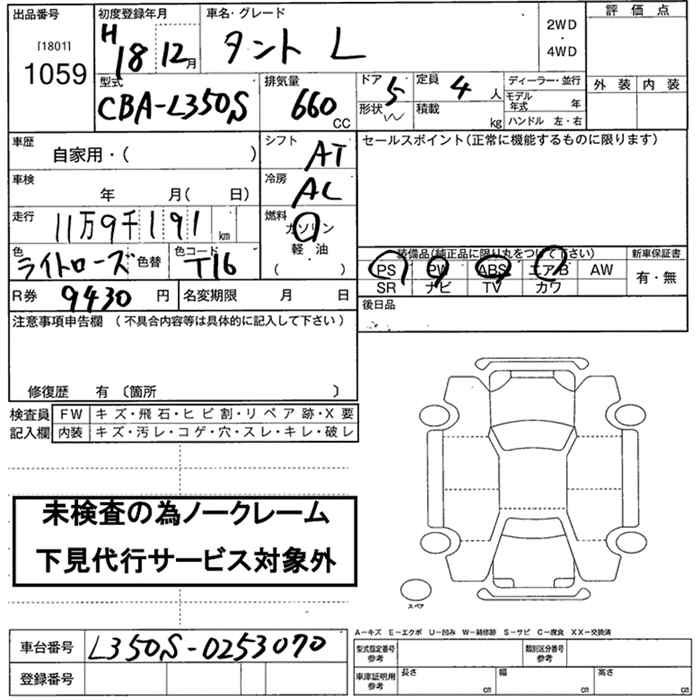 出品番号 初度登録年月 車名・グレード 評価点
[1801] H 18 12月 タント L 2WD・4WD
1059 外装 内装
型式 CBA-L350S 排気量 660 CC ドア 5 形状 定員 4 人 積載 kg ディーラー・並行 モデル年式 年 ハンドル 左・右
車歴 自家用・( ) シフト AT セールスポイント(正常に機能するものに限ります)
車検 年 月( 日) 冷房 AC
走行 11万9千191 km 燃料 ガソリン 軽・油 ( )
色 ライトローズ 色替 色コード T16 装備品(純正品に限り丸をつけて下さい) 新車保証書
PS PW ABS エアB AW 有・無
SR ナビ TV カワ
R券 9430 円 名変期限 月 日 後日品
注意事項申告欄 (不具合内容等は具体的に記入して下さい)
修復歴 有 〔箇所 〕
検査員 FW キズ・飛石・ヒビ割・リペア跡・X要
記入欄 内装 キズ・汚レ・コゲ・穴・スレ・キレ・破レ
未検査の為ノークレーム
下見代行サービス対象外
スペア
車台番号 L350S-0253070
登録番号
A-キズ E-エクボ U-凹み W-補修跡 S-サビ C-腐食 XX-交換済
型式指定番号 参考 類別区分番号 参考
車庫証明用 参考 長さ cm 幅 cm 高さ cm